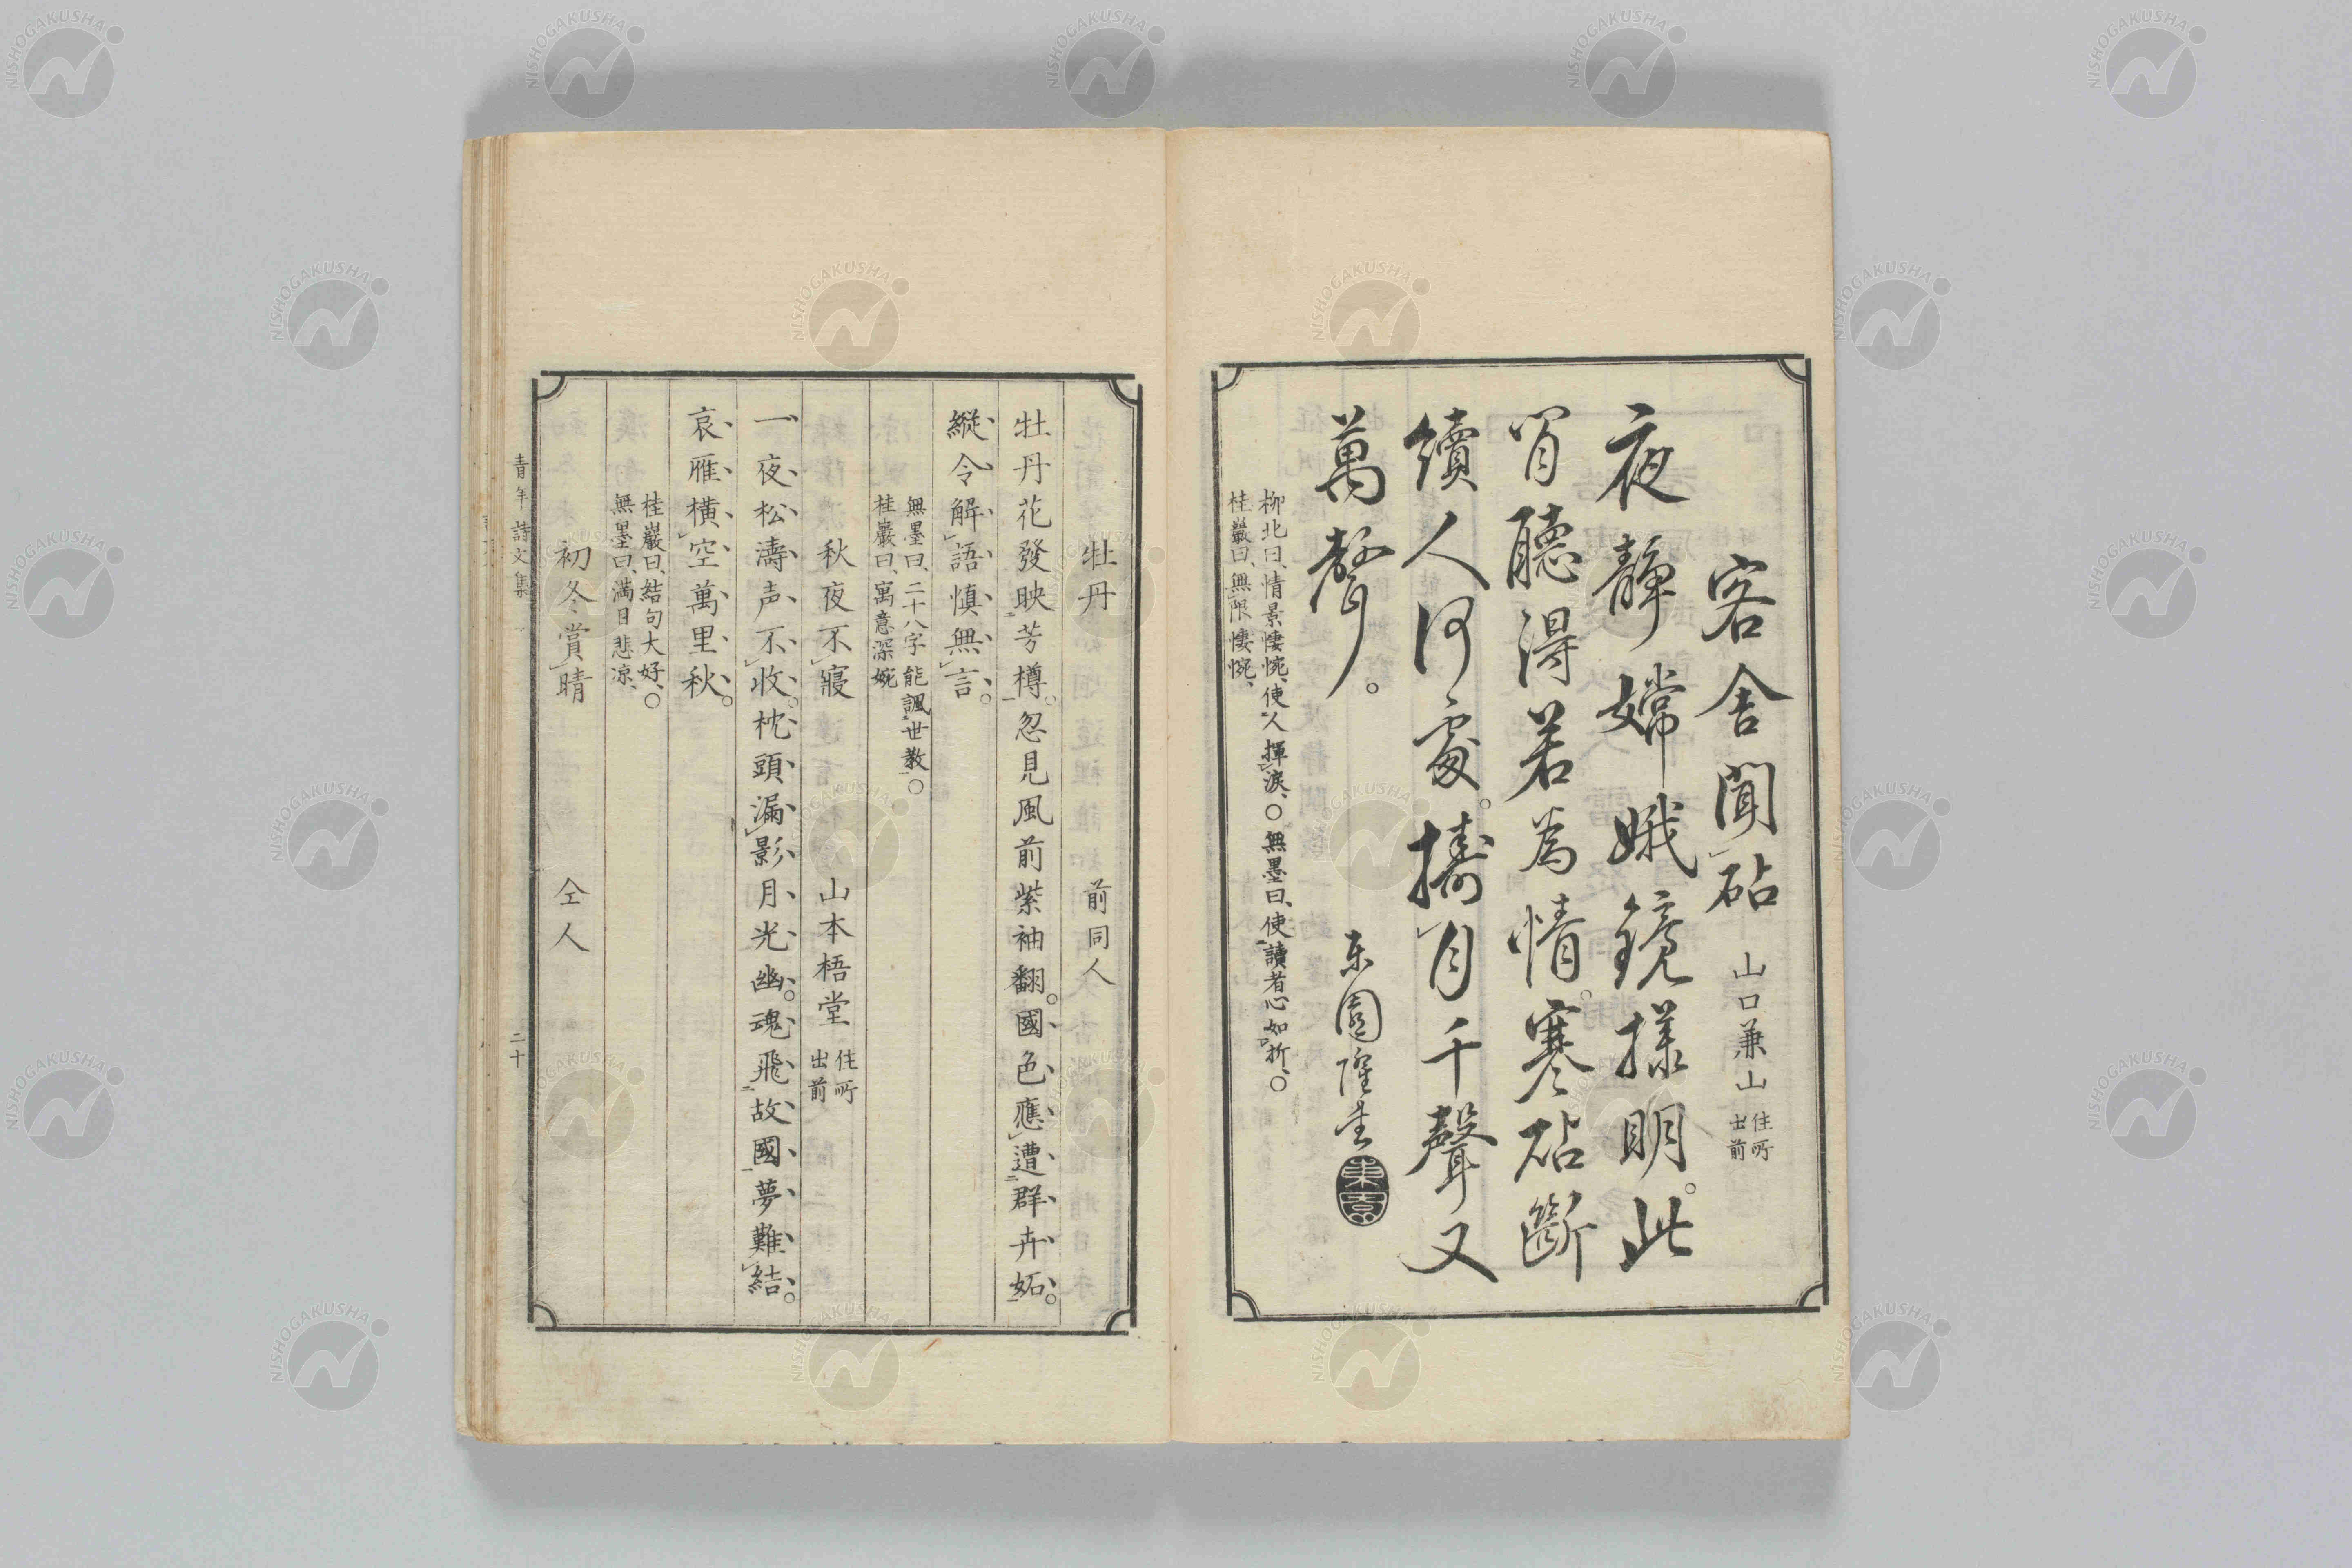 客舎聞砧 山口兼山 住所出前
夜静嫦娥鏡様明。此
宵聴得若為情。寒砧断
続人何処。擣月千聲又
萬聲。
東園隆書
柳北曰、情景悽惋、使人揮涙、〇無墨曰、使讀者心如折、〇
桂巖曰、無限悽惋、
牡丹 前同人
牡丹花發映芳樽。忽見風前紫袖翻。國色應遭群卉妬。
縦令解語慎無言。
無墨曰、二十八字能諷世教。〇
桂巖曰、寓意深婉
秋夜不寝 山本梧堂 住所出前
一夜松濤声不收。枕頭漏影月光幽。魂飛故國夢難結。
哀雁横空萬里秋。
桂巖曰、結句大好、〇
無墨曰、満目悲凉、
初冬賞晴 仝人
青年詩文集 二十
NISHOGAKUSHA